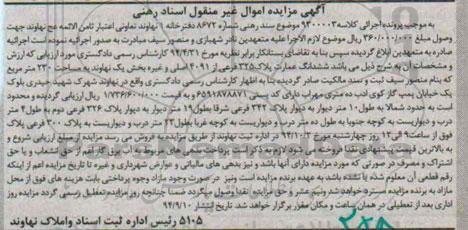 آگهی مزایده اموال غیر منقول اسناد رهنی
به موجب پرونده اجرائی کلاسه ۹۳۰۰۰۰۳ موضوع سند رهنی شماره ۸۶۷۲ دفترخانه ۱ نهاوند تعاونی اعتبار ثامن الائمه عج نهاوند جهت
وصول مبلغ ۳۶۰/۰۰۰/۰۰۰ ریال موضوع لازم الاجرا علیه متعهدین نادر شهبازی و منصور سیف مبادرت به صدور اجرائیه نموده است اجرائیه
صادره به متعهدین ابلاغ گردیده سپس بنا به تقاضای بستانکار برابر نظریه مورخ ۹۴/۴/۳۱ کارشناس رسمی دادگستری مورد ارزیابی که ارزش
و مشخصات آن به شرح ذیل می باشد ششدانگ عمارت پلاک ۲۲۵ فرعی از ۴۰۰۱ اصلی و غیره بخش یک نهاوند به مساحت ۲۳۰ متر مربع
بنام منصور سیف ثبت و سند مالکیت صادر گردیده بنا به اظهار کارشناس رسمی دادگستری واقع در نهاوند شهرک شهید حیدری بلوک
یک خیابان پمپ گاز کوی ادب ده متری مهراب دارای کد پستی ۶۵۹۱۸۷۸۸۷۱ به قیمت ۱/۷۳۶/۶۰۰/۰۰۰ ریال ارزیابی گردیده محدود
است به حدود شمالا به طول ۱۰ متر دیوار به دیوار پلاک ۳۴۲ فرعی شرقا بطول ۱۹ متر دیوار به دیوار پلاک ۲۲۶ فرعی دوم به طول ۴ متر
درب و دیواریست به کوچه جنوبا به طول ده متر درب و دیواریست به کوچه غربا بطول ۲۳ متر درب و دیواریست به پلاک ۳۰۰ فرعی پلاک
فوق از ساعت ۹ الی ۱۲ روز چهارشنبه مورخ ۹۴/۱۰/۲ در اداره ثبت نهاوند از طریق مزایده به فروش می رسد مزایده از مبلغ ارزیابی شروع و
به بالاترین قیمت پیشنهادی نقدا فروخته می شود لازم به ذکر است پرداخت بدهی های مربوط به آب برق گاز اعم از حق انشعاب و یا حق
اشتراک و مصرف در صورتی که مورد مزایده دارای آنها باشد و نیز بدهی های مالیاتی و عوارض شهرداری و غیره تا تاریخ مزایده اعم از اینکه
رقم قطعی آن معلوم شده یا نشده باشد به عهده برنده مزایده است ونیز در صورت وجود مازاد وجوه پرداختی بابت هزینه های فوق از محل
مازاد به برنده مزایده مسترد خواهد شد ونیم عشر و حق مزایده نقدا وصول میگردد ضمنا چنانچه روز مزایده تعطیل رسمی گردد مزایده روز
اداری بعد از تعطیلی در همان ساعت و مکان مقرر برگزار خواهد شد. تاریخ انتشار ۹۴/۹/۱۰
۵۱۰۵ رئیس اداره ثبت اسناد واملاک نهاوند